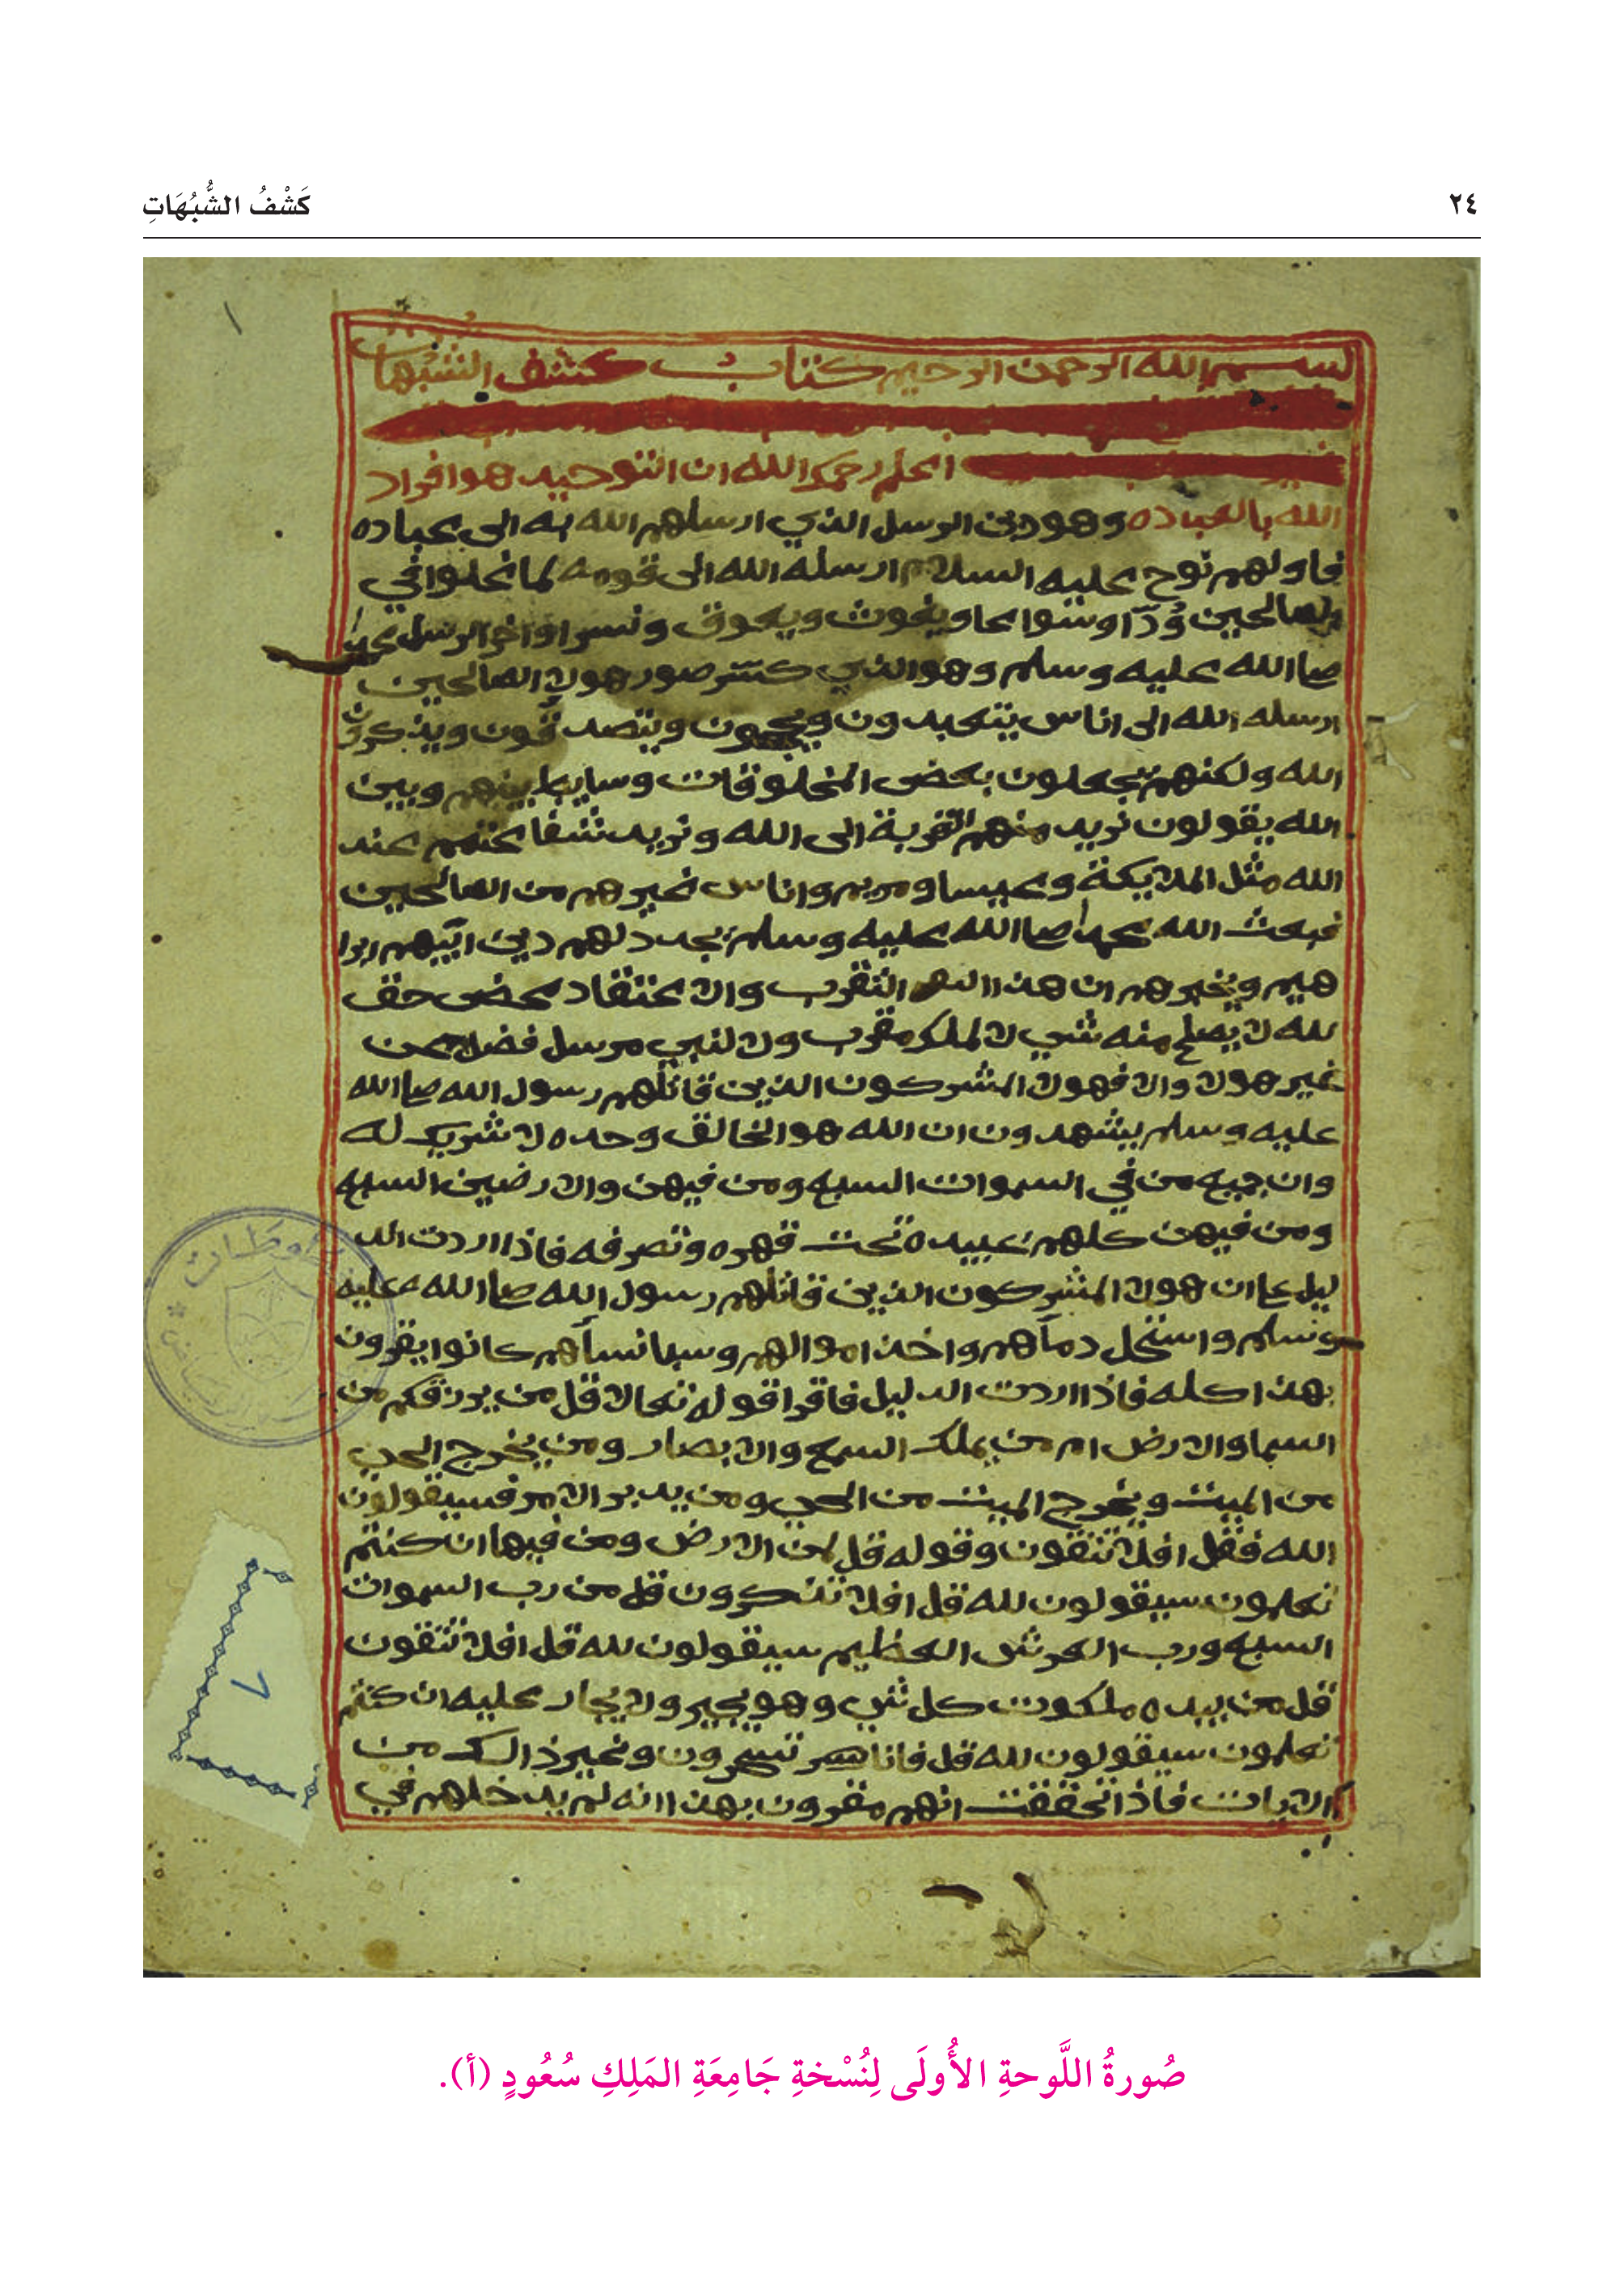 ٢٤
كَشْفُ الشُّبُهَاتِ
بسم الله الرحمن الرحيم كتاب كشف الشبهات
اعلم رحمك الله ان التوحيد هو افراد
الله بالعباده وهو دين الرسل الذي ارسلهم الله به الى عباده
فاولهم نوح عليه السلام ارسله الله الى قومه لما غلوا في
الصالحين وُدّا وسواعا ويغوث ويعوق ونسرا واخر الرسل محمد
صلى الله عليه وسلم وهو الذي كسّر صور هولا الصالحين
ارسله الله الى اناس يتعبدون ويحجون ويتصدقون ويذكرون
الله ولكنهم يجعلون بعض المخلوقات وسايط بينهم وبين
الله يقولون نريد منهم التقربة الى الله ونريد شفاعتهم عند
الله مثل الملايكة وعيسا ومريم واناس غيرهم من الصالحين
فبعث الله محمدا صلى الله عليه وسلم يجدد لهم دين ابيهم ابرا
هيم ويخبرهم ان هذا التقرب والاعتقاد محض حق
لله لا يصلح منه شي لا لملك مقرب ولا لنبي مرسل فضلا عن
غير هولا والا فهولا المشركون الذين قاتلهم رسول الله صلى الله
عليه وسلم يشهدون ان الله هو الخالق وحده لا شريك له
وان جميع من في السموات السبع ومن فيهن والارضين السبع
ومن فيهن كلهم عبيده تحت قهره وتصرفه فاذا اردت الد
ليل على ان هولا المشركون الذين قاتلهم رسول الله صلى الله عليه
وسلم واستحل دمآهم واخذ اموالهم وسبا نسآهم كانوا يقرون
بهذا كله فاذا اردت الدليل فاقرا قوله تعالا قل من يرزقكم من
السما والارض ام من يملك السمع والابصار ومن يخرج الحي
من الميت ويخرج الميت من الحي ومن يدبر الامر فسيقولون
الله فقل افلا تتقون وقوله قل لمن الارض ومن فيها ان كنتم
تعلمون سيقولون لله قل افلا تذكرون قل من رب السموات
السبع ورب العرش العظيم سيقولون لله قل افلا تتقون
قل من بيده ملكوت كل شي وهو يجير ولا يجار عليه ان كنتم
تعلمون سيقولون لله قل فانا تسحرون وغير ذالك من
الايات فاذا تحققت انهم مقرون بهذا انه لم يدخلهم في
٧
صُورةُ اللَّوحةِ الأُولَى لِنُسْخةِ جَامِعَةِ المَلِكِ سُعُودٍ (أ).